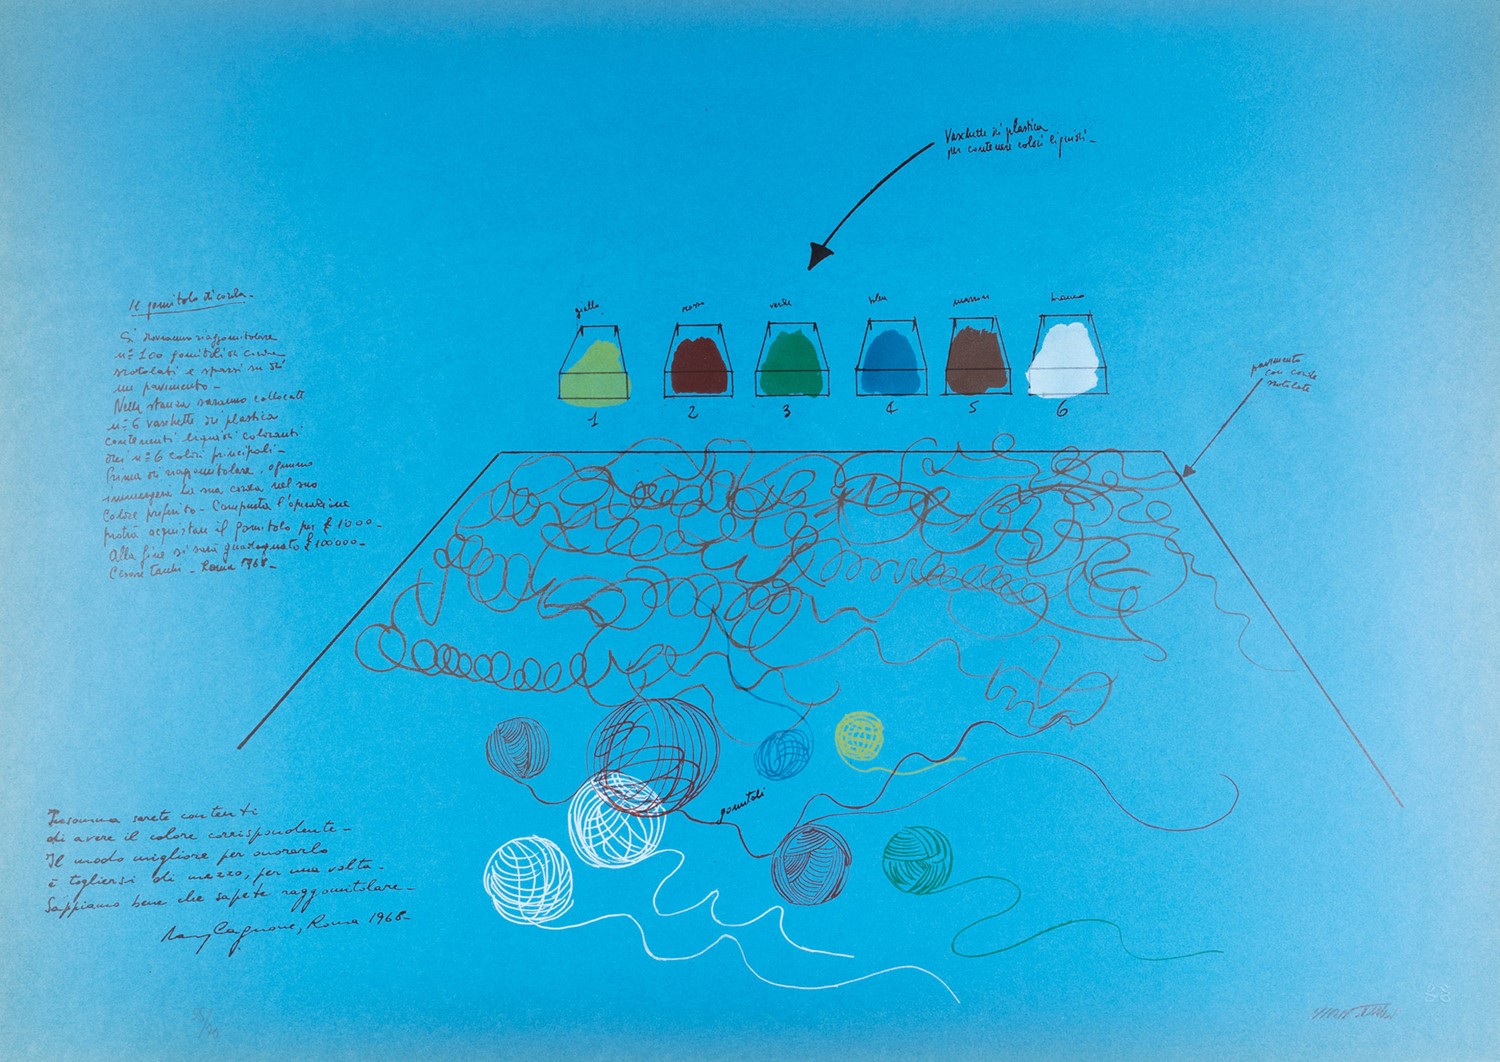 Vaschette di plastica
per contenere colori liquidi –
giallo rosso verde bleu marrone bianco
1 2 3 4 5 6
pavimento
con corde
srotolate
Il gomitolo di corda –
Si dovranno raggomitolare
n= 100 gomitoli di corda
srotolati e sparsi su di
un pavimento –
Nella stanza saranno collocati
n= 6 vaschette di plastica
contenenti liquidi coloranti
dei n= 6 colori principali –
Prima di raggomitolare, ognuno
immergerà la sua corda nel suo
colore preferito – Compiuta l'operazione
potrà acquistare il gomitolo per £ 1000 –
Alla fine si sarà guadagnato £ 100000 –
Cesare Tacchi – Roma 1968 –
gomitoli
Insomma sarete contenti
di avere il colore corrispondente –
Il modo migliore per onorarlo
è togliersi di mezzo, per una volta –
Sappiamo bene che sapete raggomitolare –
Cagnone, Roma 1968 –